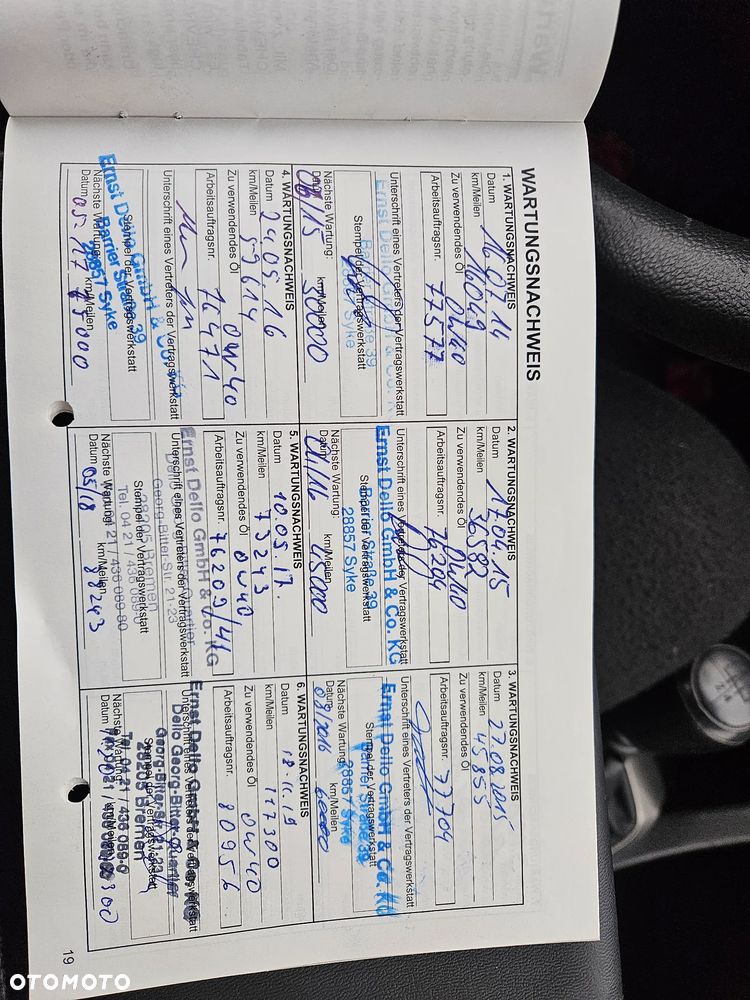 WARTUNGSNACHWEIS
1. WARTUNGSNACHWEIS
Datum 16.07.14
km/Meilen 14049
Zu verwendendes Öl 0W40
Arbeitsauftragsnr. 77577
Unterschrift eines Vertreters der Vertragswerkstatt
Ernst Dello GmbH & Co. KG
Barrier Straße 39
28857 Syke
Stempel der Vertragswerkstatt
Nächste Wartung:
Datum 06/15 km/Meilen 30000
2. WARTUNGSNACHWEIS
Datum 17.04.15
km/Meilen 36582
Zu verwendendes Öl 0W40
Arbeitsauftragsnr. 76204
Unterschrift eines Vertreters der Vertragswerkstatt
Ernst Dello GmbH & Co. KG
Barrier Straße 39
28857 Syke
Stempel der Vertragswerkstatt
Nächste Wartung:
Datum 04/16 km/Meilen 45000
3. WARTUNGSNACHWEIS
Datum 27.08.2015
km/Meilen 45855
Zu verwendendes Öl
Arbeitsauftragsnr. 77704
Unterschrift eines Vertreters der Vertragswerkstatt
Ernst Dello GmbH & Co. KG
Barrier Straße 39
28857 Syke
Stempel der Vertragswerkstatt
Nächste Wartung:
Datum 08/2016 km/Meilen 60000
4. WARTUNGSNACHWEIS
Datum 24.05.16
km/Meilen 59614
Zu verwendendes Öl 0W40
Arbeitsauftragsnr. 76471
Unterschrift eines Vertreters der Vertragswerkstatt
Ernst Dello GmbH & Co. KG
Barrier Straße 39
28857 Syke
Stempel der Vertragswerkstatt
Nächste Wartung:
Datum 05.17 km/Meilen 75000
5. WARTUNGSNACHWEIS
Datum 10.05.17
km/Meilen 73243
Zu verwendendes Öl 0W40
Arbeitsauftragsnr. 76209/41
Ernst Dello GmbH & Co. KG
Unterschrift eines Vertreters der Vertragswerkstatt
Georg-Bitter-Str. 21-23
28205 Bremen
Stempel der Vertragswerkstatt
Tel. 04 21 / 436 089-0
Nächste Wartung:
Datum 05/18 km/Meilen 88243
6. WARTUNGSNACHWEIS
Datum 18.11.19
km/Meilen 117300
Zu verwendendes Öl 0W40
Arbeitsauftragsnr. 80956
Ernst Dello GmbH & Co. KG
Unterschrift eines Vertreters der Vertragswerkstatt
Dello Georg-Bitter-Quartier
Georg-Bitter-Str. 21-23
28205 Bremen
Tel. 04 21 / 436 089-0
Nächste Wartung:
Datum km/Meilen
19
OTOMOTO